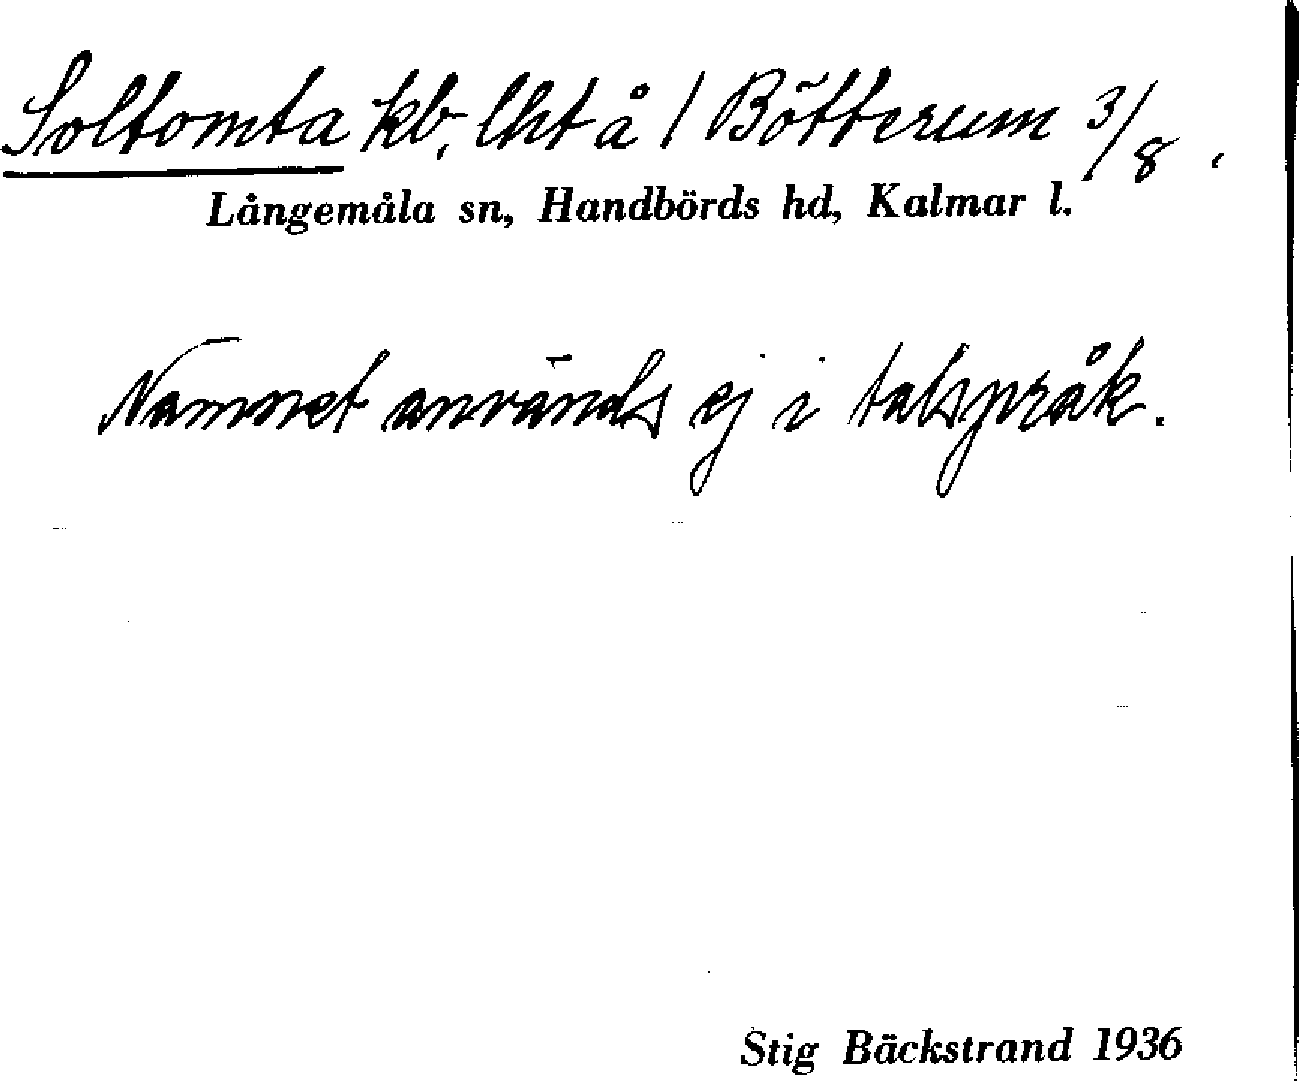 Soltomta kb, lht å / Bötterum 3/8.
Långemåla sn, Handbörds hd, Kalmar l.
Namnet används ej i talspråk.
Stig Bäckstrand 1936